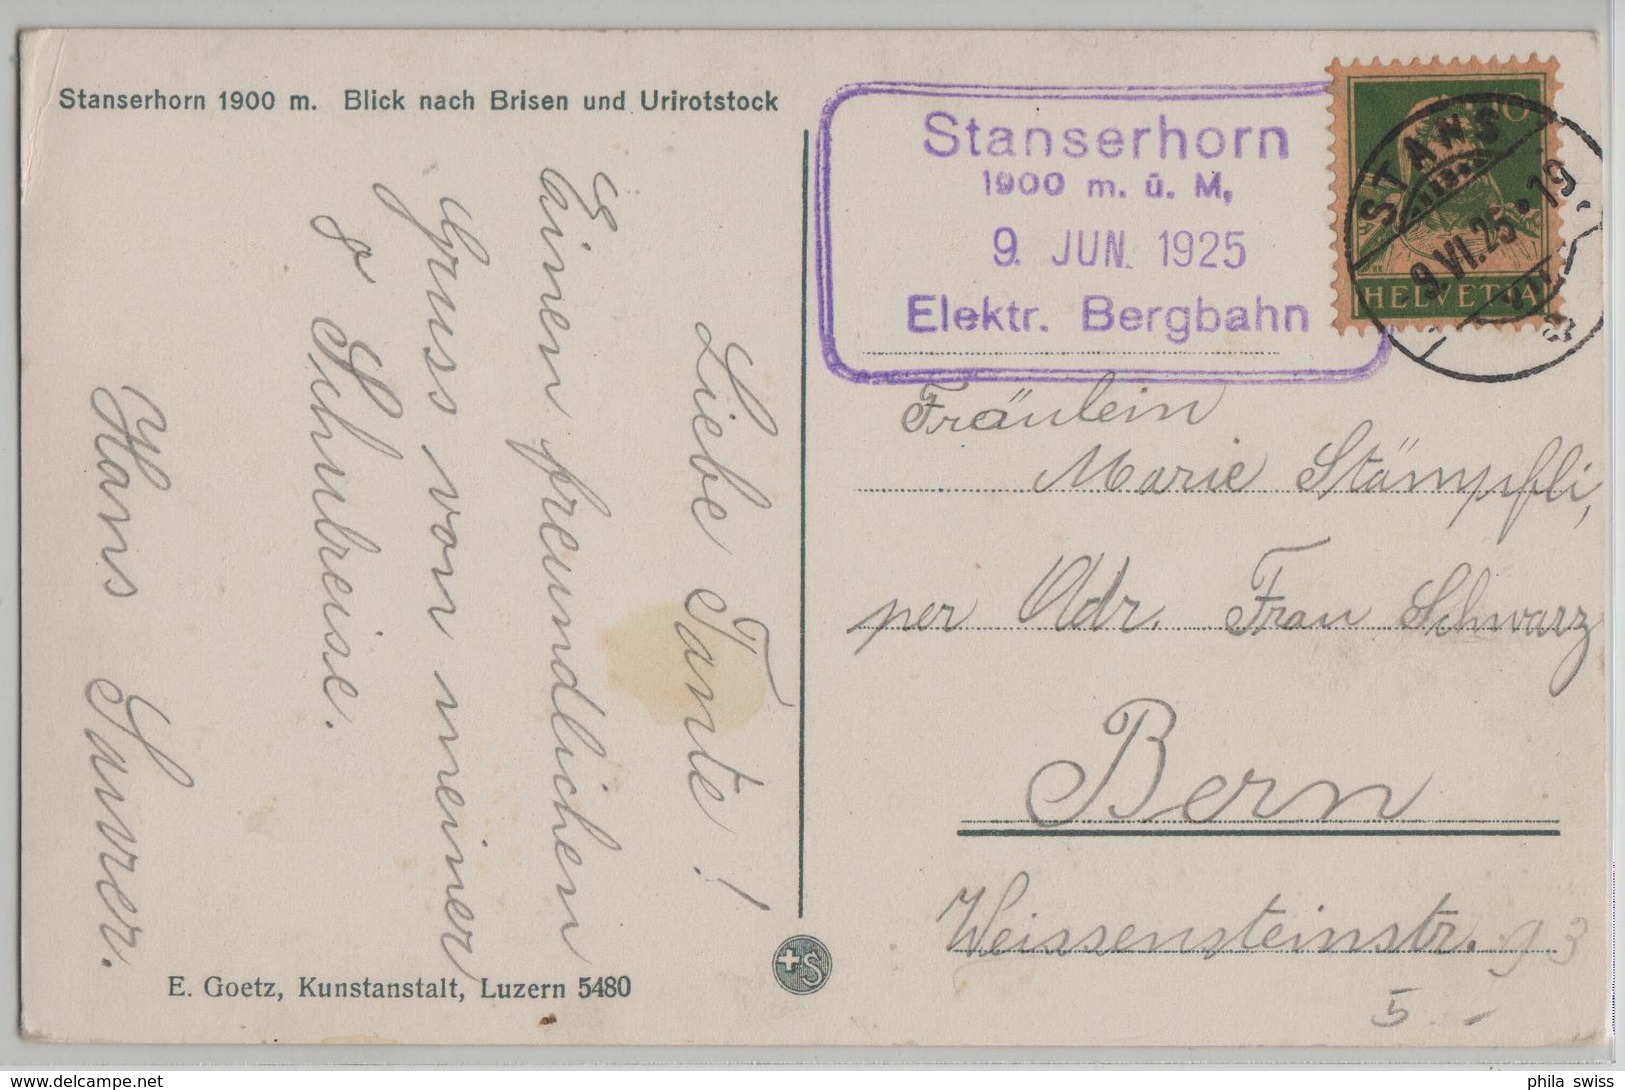 Stanserhorn 1900 m. Blick nach Brisen und Urirotstock
Liebe Tante!
Einen freundlichen
Gruss von meiner
Schulreise.
Hans Saurer.
E. Goetz, Kunstanstalt, Luzern 5480
+S
Stanserhorn
1900 m. ü. M,
9. JUN. 1925
Elektr. Bergbahn
10
HELVETIA
STANS
9.VI.25•19
Fräulein
Marie Stämpfli,
per Adr. Frau Schwarz
Bern
Weissensteinstr. 93
5.-
phila swiss